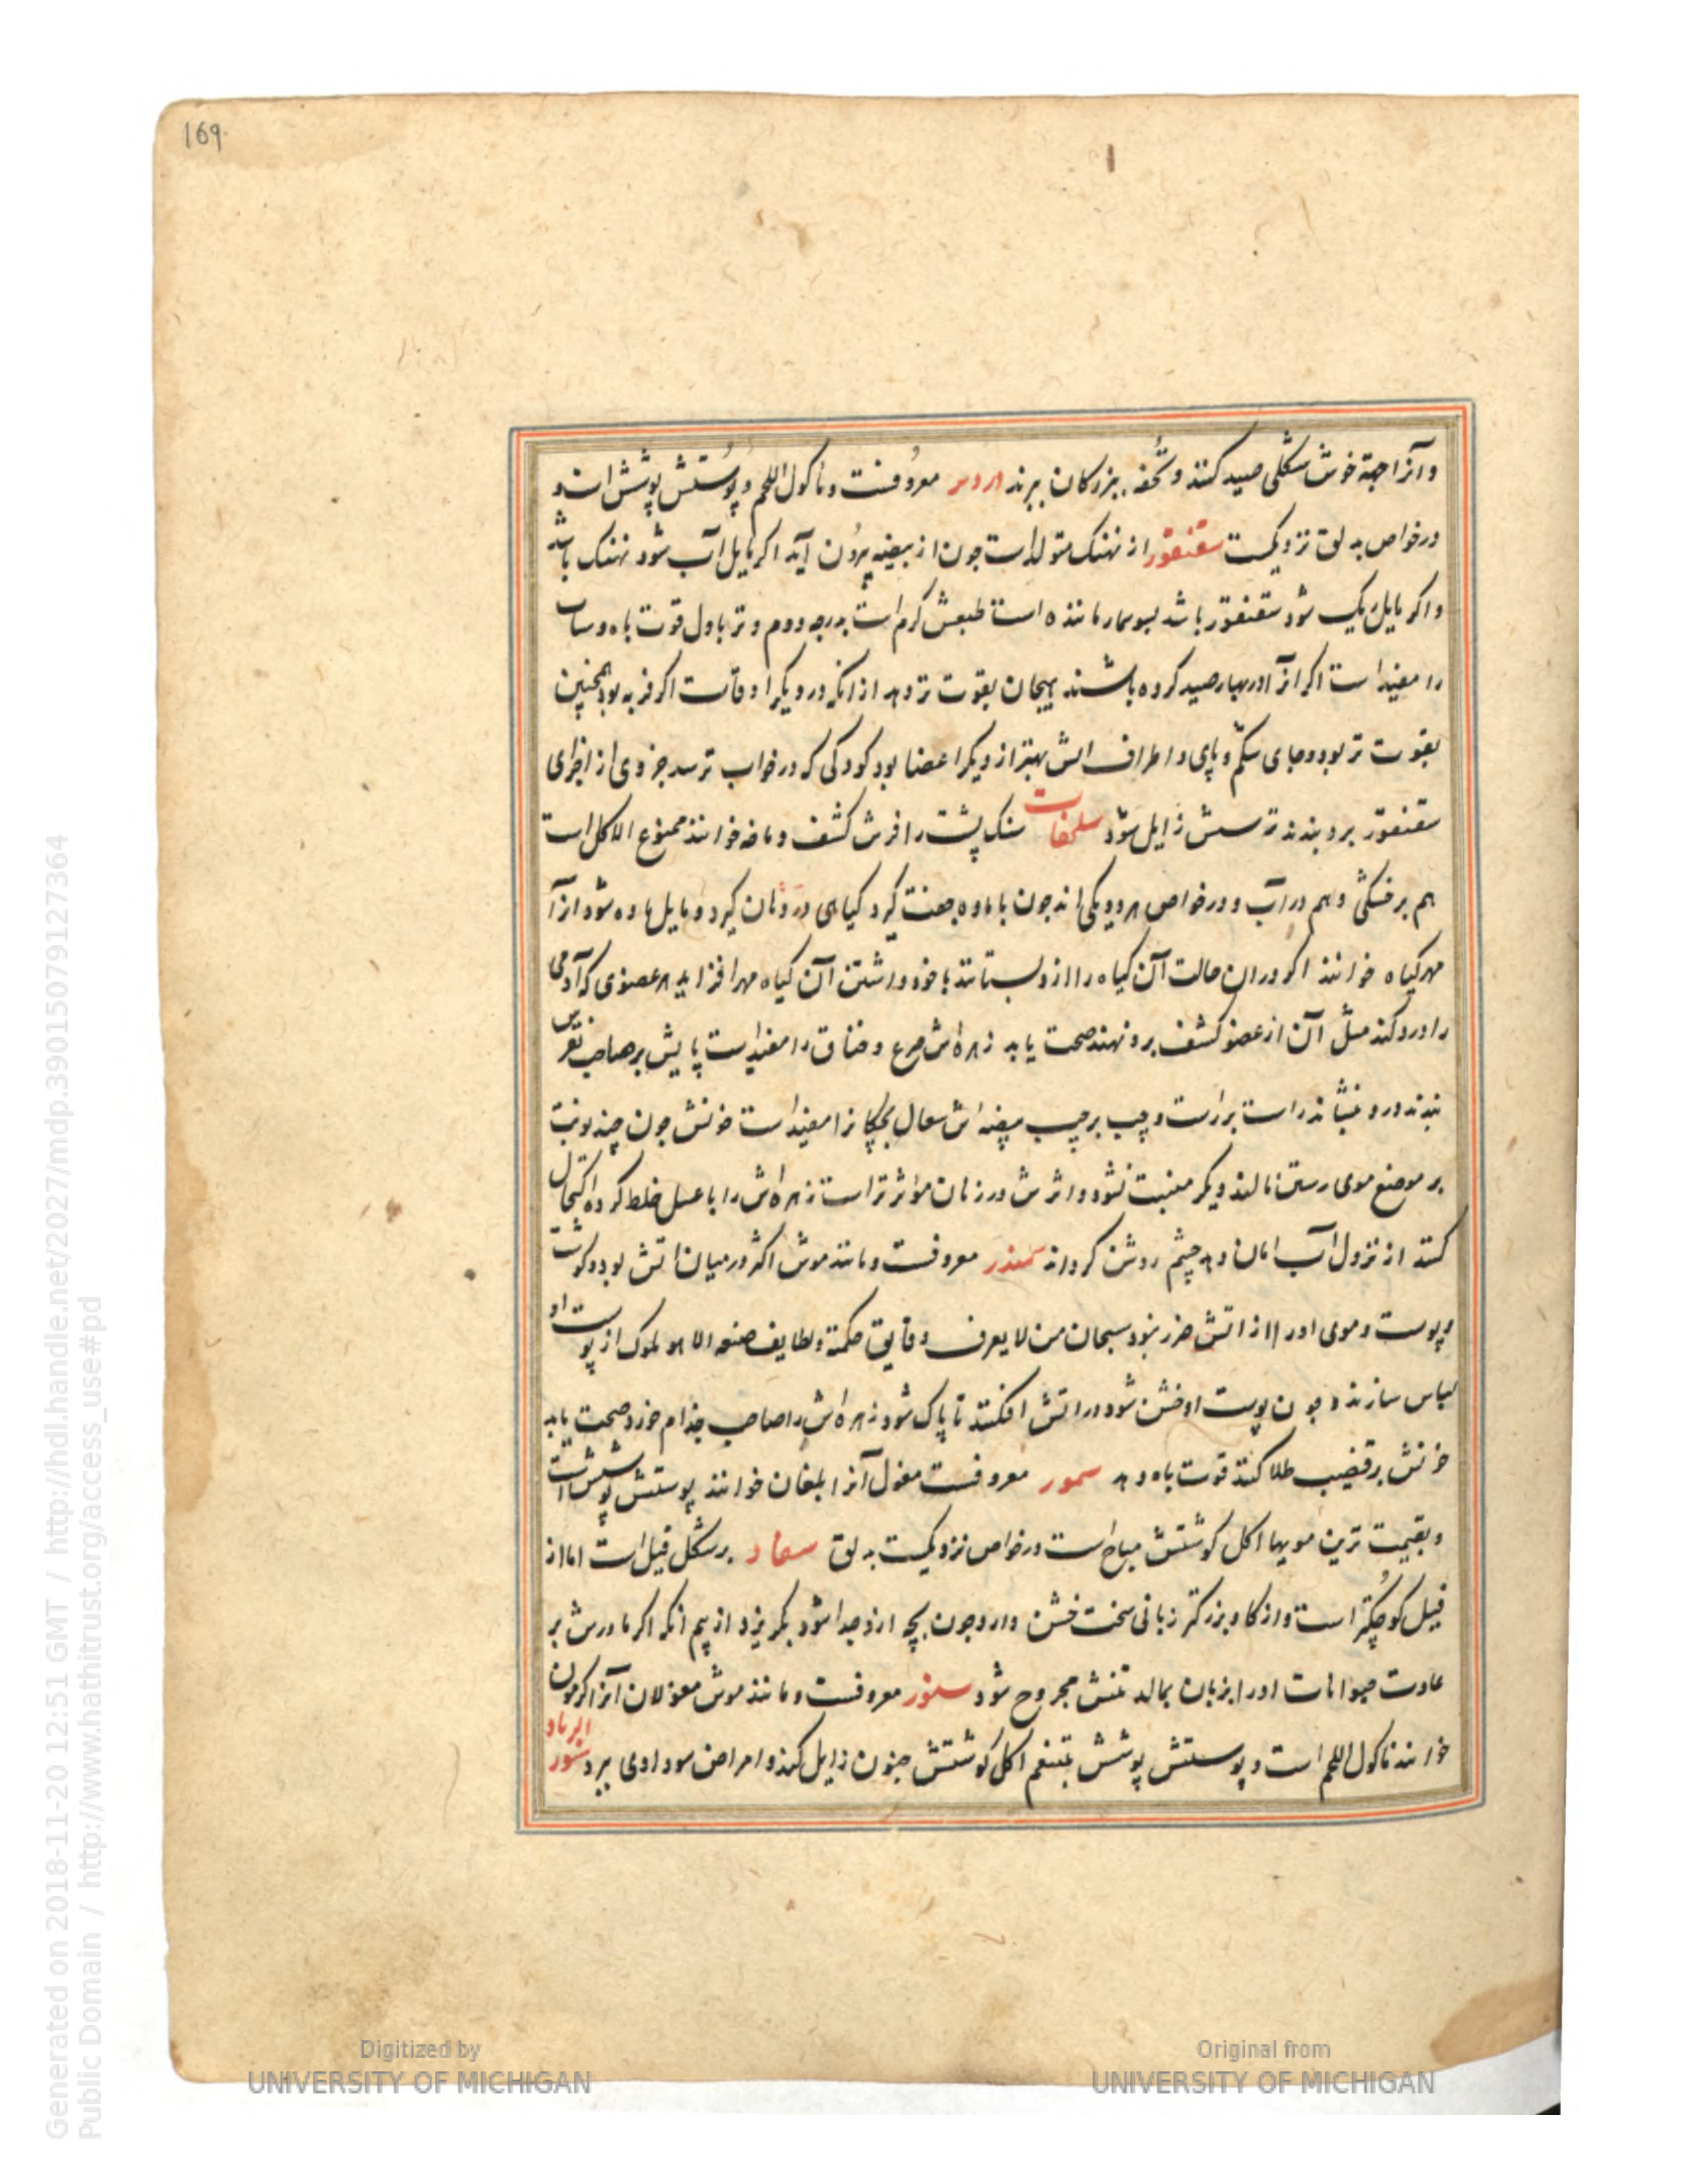 169
وآنرا جهة خوش شکلی صید کنند و تحفه بیزرکان برند معروفست و ماکول اللحم و پوستش پوشش است و
در خواص به دلق نزدیکست سقنقور از نهنک متولد است جون از بیضه بیرون آید اکر مایل آب شود نهنک باشد
و اکر مایل ریک شود سقنقور باشد بسوسمار ماننده است طبعش کرم است بدرجه دوم و تر باول قوت باه و
را مفید است اکر انرا در بهار صید کرده باشند بهیجان بقوت تر دهد از انکه در دیکر اوقات اکر فربه بود همچنین
بقوت تر بود و جای شکم و پای و اطراف الش بهتر از دیکر اعضا بود کودکی که در خواب ترسد جزوی از اجزای
سقنقور برو بندند ترسش زایل شود سلحفات سنک پشت را فرس کشف و خوانند ممنوع الاکل است
هم بر خشکی و هم در آب و در خواص هر دو یکی اند جون با ماده جفت کیرد کیاهی در دهان کیرد و مایل ماده شود انرا
مهرکیاه خوانند اکر در ان حالت آن کیاه را ازو بستانند با خود داشتن آن کیاه مهر افزاید هر عضوی که آدمی
را درد کند مثل آن از عضو کشف برو نهند صحت یابد زهره اش صرع و خناق را مفید است پایش بر صاحب نقرس
بندند درد بنشاند راست بر راست و چپ بر چپ بیضه اش سعال بچکانرا مفید است خونش جون چند نوبت
بر موضع موی رستن مالند دیکر منبت نشود و اثرش در زنان مؤثر تر است زهره اش را با عسل خلط کرده اکتحال
کنند از نزول آب امان دهد چشم روشن کرداند سمندر معروفست و مانند موش اکثر در میان اتش بود و کوشت
و پوست و موی او را از اتش ضرر نبود سبحان من لا یعرف دقایق حکمته و لطایف صنعه الا هو ملوک از پوست او
لباس سازند و جون پوست او خشن شود در اتش افکنند تا پاک شود زهره اش را صاحب جذام خورد صحت یابد
خونش بر قضیب طلا کنند قوت باه دهد سمور معروفست مغول آنرا بلغان خوانند پوستش پوشش است
و بقیمت ترین مویها اکل کوشتش مباح است در خواص نزدیکست به دلق سناد بر شکل فیل است اما از
فیل کوچکتر است و از کاو بزرکتر زبانی سخت خشن دارد جون بچه ازو جدا شود بکریزد از بیم انکه اکر مادرش بر
عادت حیوانات او را بزبان بمالد تنش مجروح شود سنور معروفست و مانند موش مغولان آنرا
خوانند ماکول اللحم است و پوستش پوشش بتنعم اکل کوشتش جنون زایل کند و امراض سوداوی ببرد سنور البرباد
Digitized by
UNIVERSITY OF MICHIGAN
Original from
UNIVERSITY OF MICHIGAN
Generated on 2018-11-20 12:51 GMT / http://hdl.handle.net/2027/mdp.39015079127364
Public Domain / http://www.hathitrust.org/access_use#pd